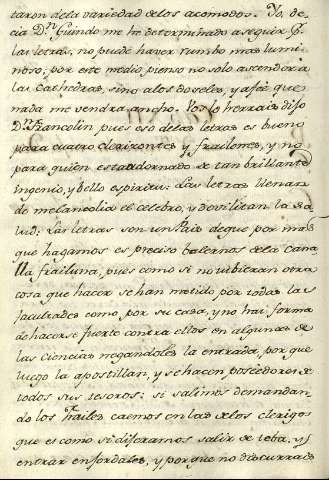 taron dela variedad delos acomodos. Yo, de-
cia Dn Guindo me he determinado a seguir
las letras, no puede haver rumbo mas lumi-
noso; por este medio pienso no solo ascender a
las Cathedras, sino alos doseles, y afeé que
nada me vendra ancho. Vos lo herrais dijo
Dn Francolin pues eso delas letras es bueno
para cuatro clerizontes y frailones, y no
para quien esta adornado de tan brillante
ingenio, y bello espiritu: Las letras llenan
de melancolia el celebro, y devilitan la sa-
lud: Las letras son un Pais de que por mas
que hagamos es preciso valernos dela cana-
lla frailuna, pues como si no ubieran otra
cosa que hacer se han metido por todas las
facultades como por su casa, y no hai forma
de hacerse fuerte contra ellos en algunas de
las ciencias negandoles la entrada, por que
luego la apostillan, y se hacen poseedores de
todos sus tesoros: si salimos demandan-
do los frailes caemos en las delos clerigos
que es como si dijeramos salir de
entrar en y porque no discurrais